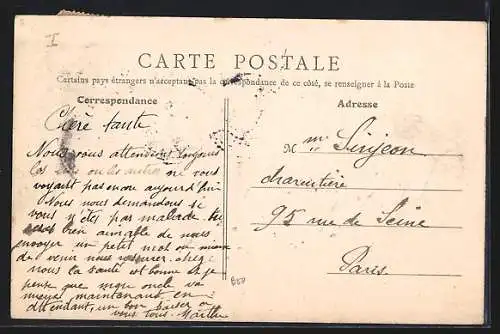 I
CARTE POSTALE
Certains pays étrangers n'acceptant pas la correspondance de ce côté, se renseigner à la Poste
Correspondance
Adresse
Chère tante
Nous vous attendions toujours
les uns ou les autres ne vous
voyant pas encore aujourd'hui
Nous nous demandons si
vous n'êtes pas malade.
bien aimable de nous
envoyer un petit mot ou mieux
de venir nous rassurer. chez
nous la santé est bonne et je
pense que mon oncle va
mieux maintenant en
attendant, un bon baiser à
vous tous. Marthe
M
charcutière
95 rue de Seine
Paris